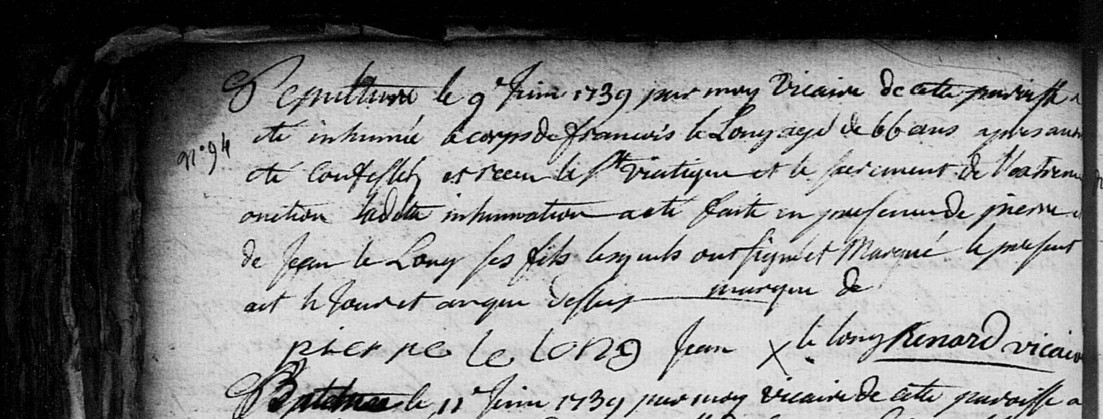 Sepulture le 9e Juin 1739 par moy Vicaire de cette paroisse a
été inhumé le corps de francois le Long agé de 66 ans apres avoir
n° 94
été confessé et receu le St Viatique et le sacrement de l'extreme
onction ladite inhumation a esté faite en presence de pierre et
de Jean le Long ses fils lesquels ont signé et Marqué le present
act le Jour et an que dessus marque de
pierre le long Jean X le long Renard vicaire
Bateme le 11e Juin 1739 par moy vicaire de cette paroisse a